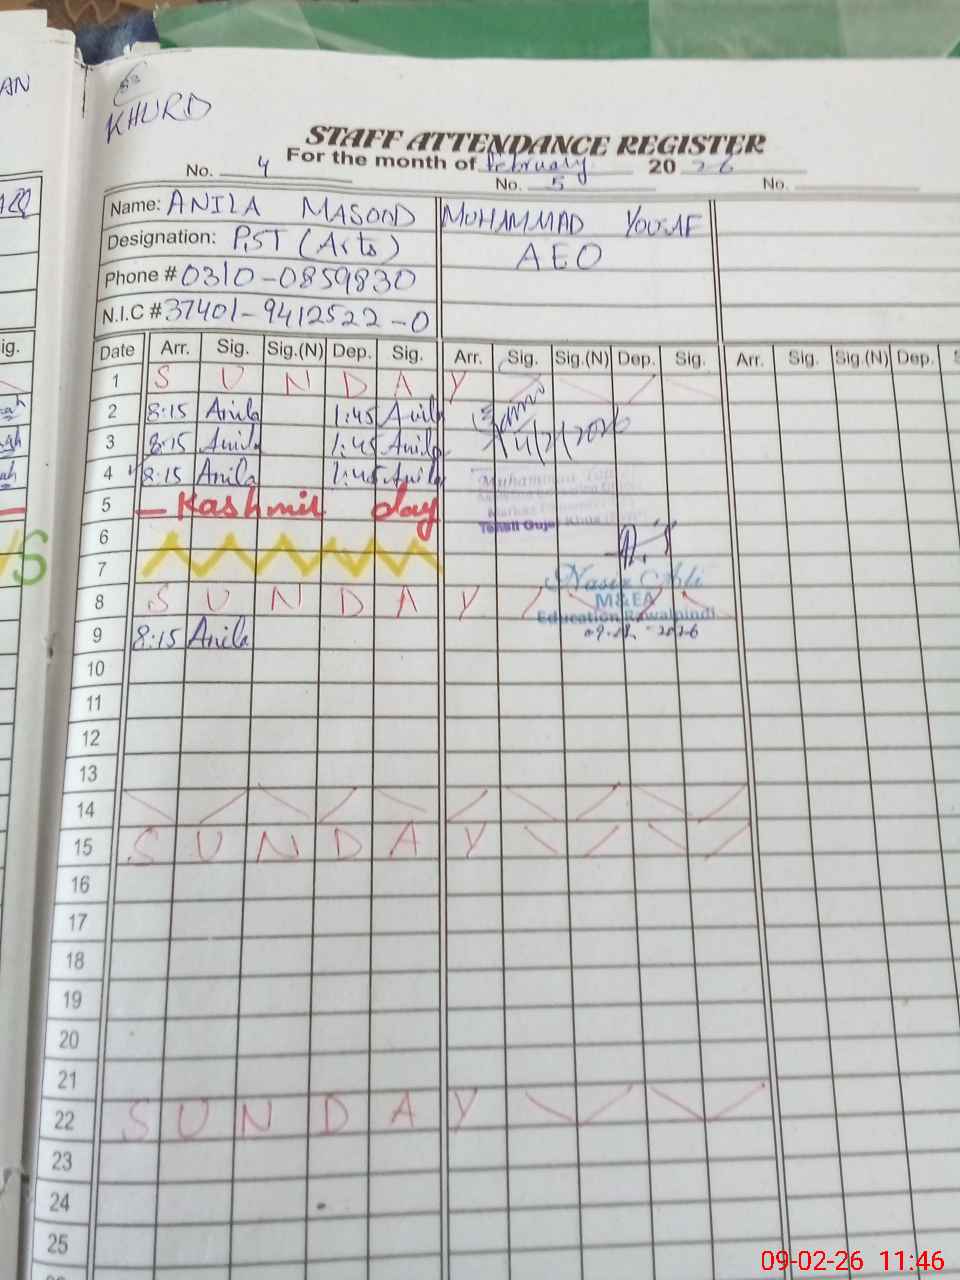 AN
KHURD
STAFF ATTENDANCE REGISTER
For the month of February 2026
No. 4 No. 5 No.
Name: ANILA MASOOD MUHAMMAD YOUSAF
Designation: PST (Arts) AEO
Phone # 0310-0859830
N.I.C # 37401-9412522-0
Date Arr. Sig. Sig.(N) Dep. Sig. Arr. Sig. Sig.(N) Dep. Sig. Arr. Sig. Sig.(N) Dep.
1 S U N D A Y
2 8:15 Anila 1:45 Anila
3 8:15 Anila 1:45 Anila
4 8:15 Anila 1:45 Anila
5 Kashmir day
6
7
8 S U N D A Y
9 8:15 Anila
10
11
12
13
14
15 S U N D A Y
16
17
18
19
20
21
22 S U N D A Y
23
24
25
4/2/2026
Muhammad
Tehsil Gujar Khan
Nasir Ali
M&EA
Education Rawalpindi
09-02-2026
09-02-26 11:46